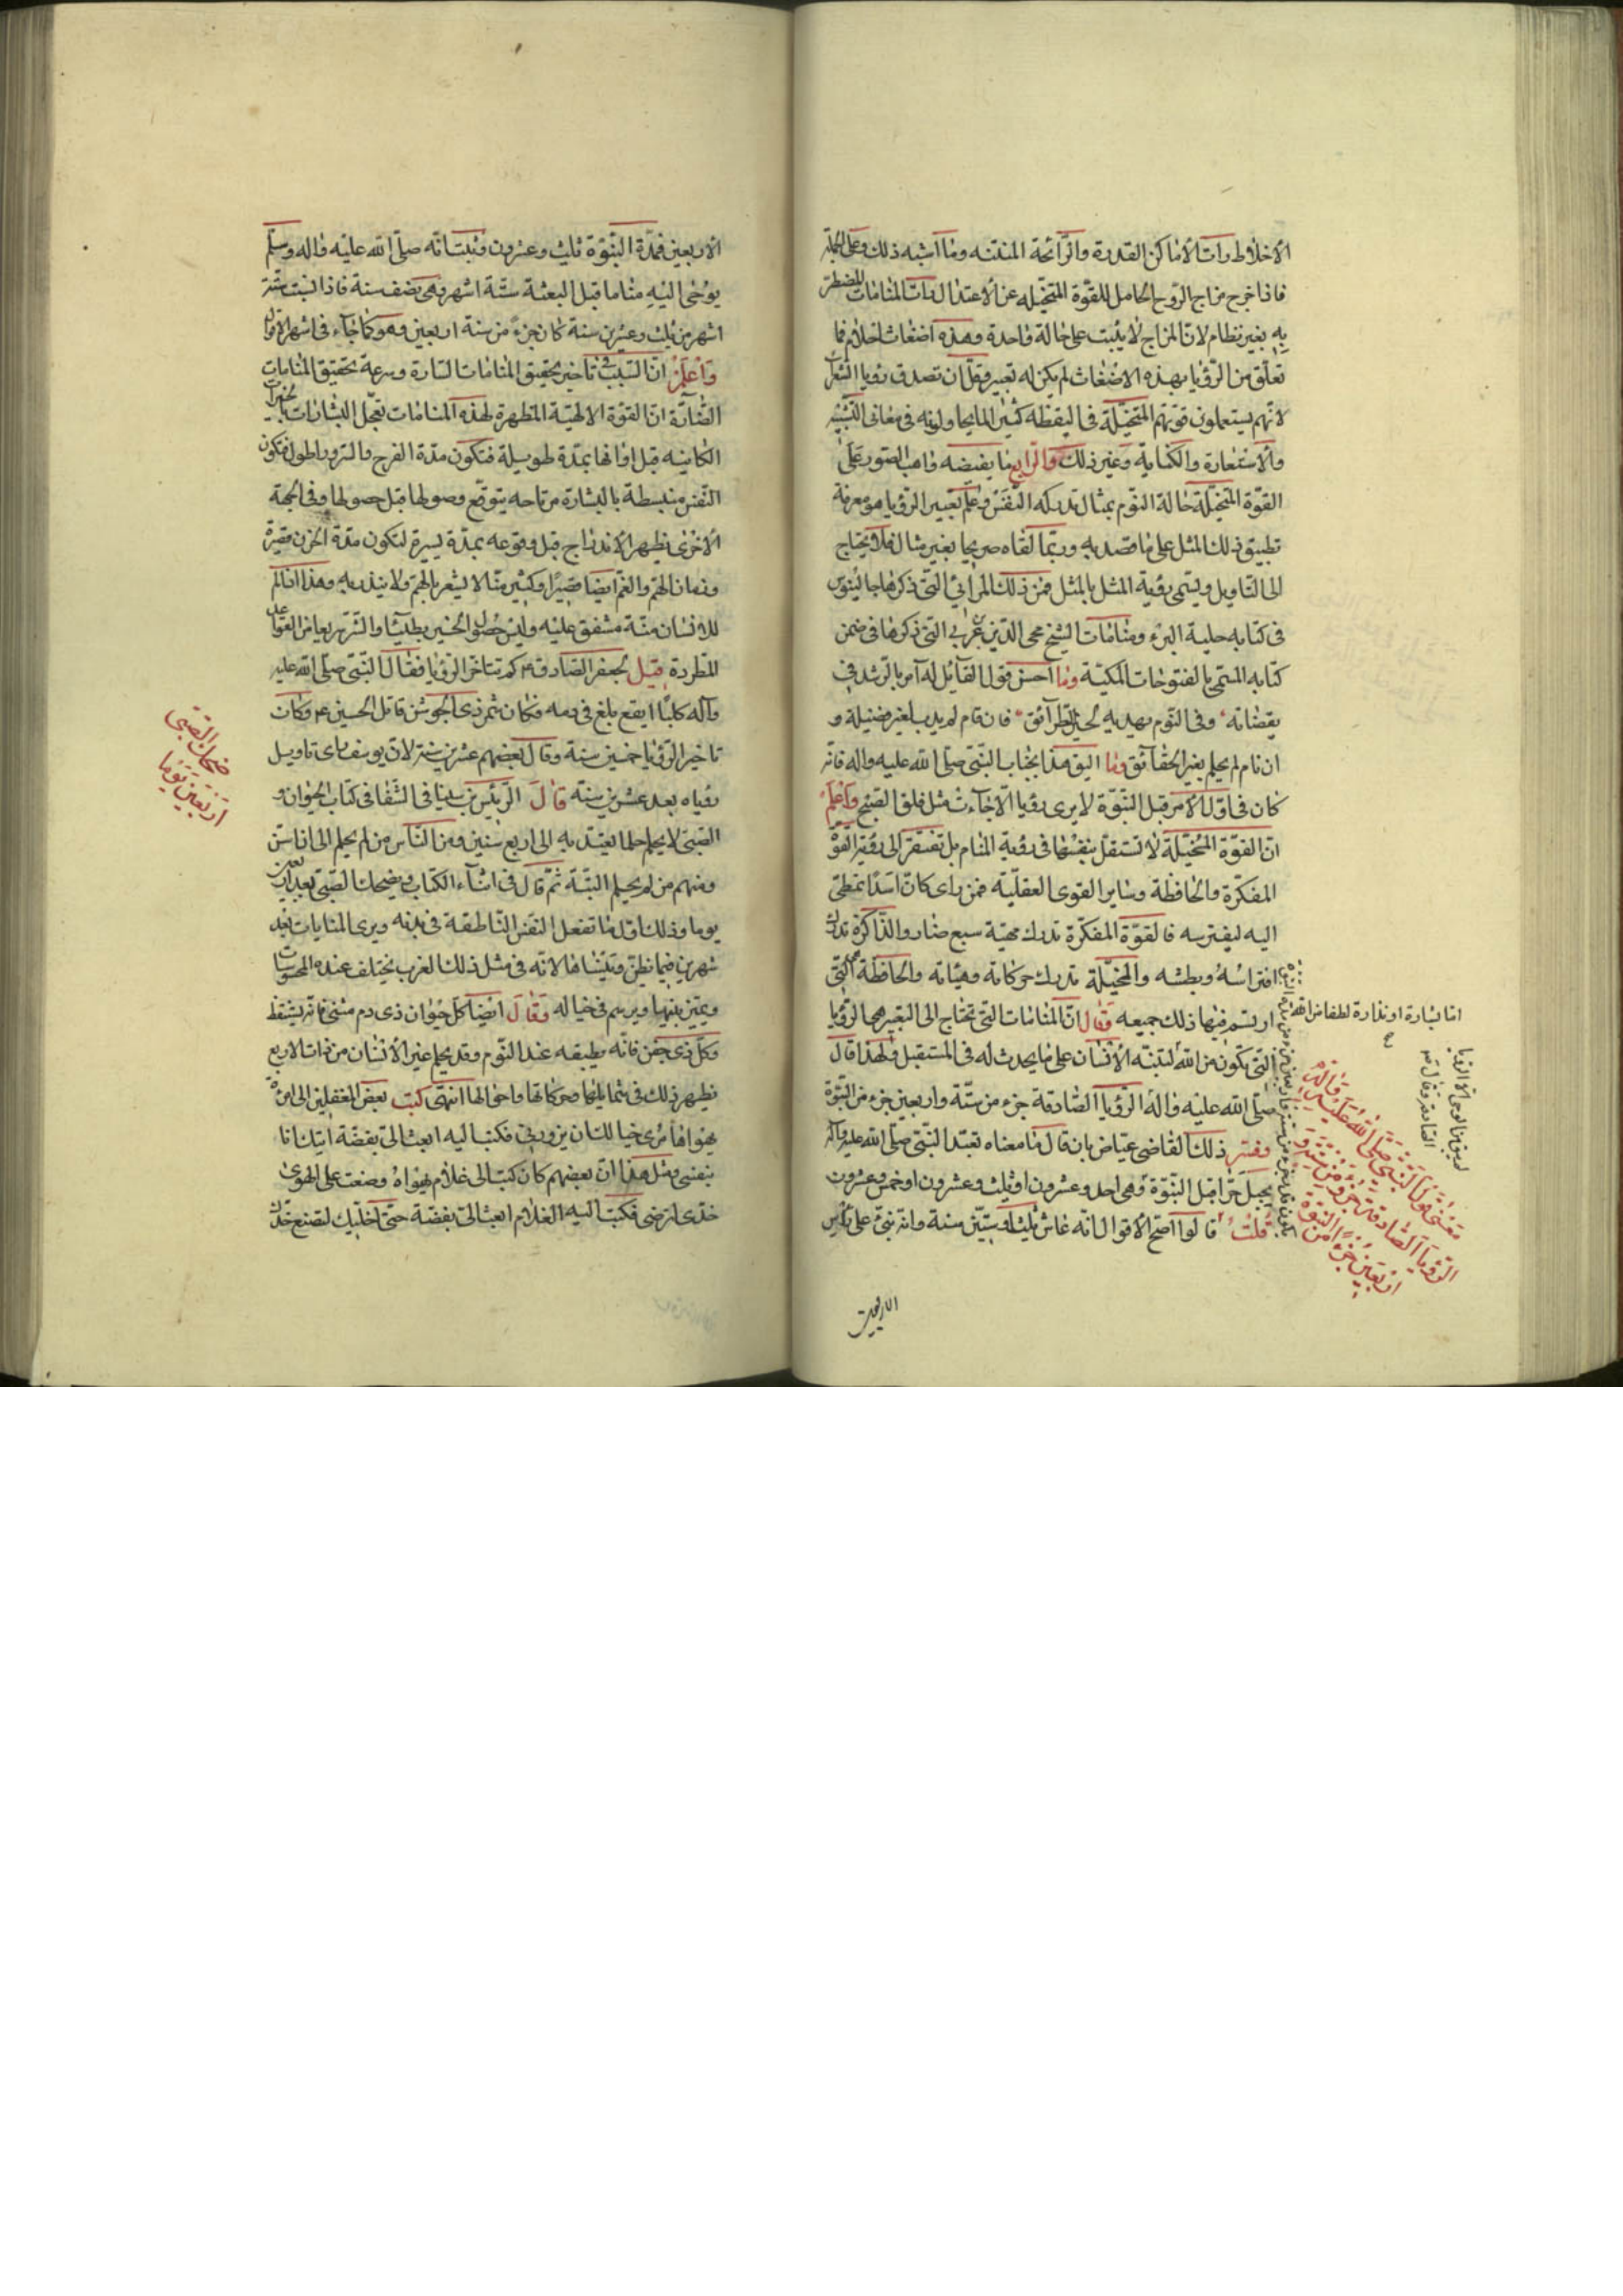 الاخلاط رات الاماكن القذرة والرّائحة المنتنه وما اشبه ذلك وعلى الجملة
فاذا خرج مزاج الرّوح الحامل للقوّة المتخيّله عن الاعتدال رات المنامات المضطر
به بغير نظام لانّ المزاج لا يثبت على حالة واحدة وهذه اضغاث احلام فما
تعلّق من الرّؤيا بهذه الاضغاث لم يكن له تعبير وقلّ ان تصدق رؤيا الشعرا
لانّهم يستعملون قوتهم المتخيّلة فى اليقظه كثيرا لما يحاولونه فى معانى التّشبيه
والاستعارة والكناية وغير ذلك والرابع ما يفيضه واهب الصّور على
القوّة المتخيّلة حالة النّوم بمثال تدركه النّفس وعلم تعبير الرّؤيا هو معرفة
تطبيق ذلك المثل على ما قصد به وربّما القاه صريحا بغير مثال فلا يحتاج
الى التّاويل ويسمى رؤية المثل بالمثل فمن ذلك المرائي التى ذكرها جالينوس
فى كتابه حيلة البرء ومنامات الشيخ محى الدّين بن عربي التى ذكرها فى ضمن
كتابه المسمى بالفتوحات المكيّة وما احسن قول القائل له آمر بالرّشد فى
يقضاته وفى النّوم يهديه لخير الطّرائق فان قام لم يداب لغير فضيلة و
ان نام لم يحلم بغير الحقائق وما اليق هذا بجناب النّبىّ صلى الله عليه واله فانّه
كان فى اوّل الامر قبل النّبوّة لا يرى رؤيا الّا جاءت مثل فلق الصّبح واعلم
انّ القوّة المتخيّلة لا تستقلّ بنفسها فى رؤية المنام بل تفتقر الى رؤية القوّة
المفكّرة والحافظة وساير القوى العقليّة فمن راى كانّ اسدا تمطى
اليه ليفترسه فالقوّة المفكرة تدرك مهيّة سبع ضار والذّاكرة تدرك
افتراسه وبطشه والمخيّلة تدرك حركاته وهيئاته والحافظة هى التى
ارتسم فيها ذلك جميعه وقال انّ المنامات التى تحتاج الى التعبير هى الرّؤيا
التى تكون من الله لتنبّه الانسان على ما يحدث له فى المستقبل ولهذا قال
صلى الله عليه واله الرّؤيا الصّادقة جزء من ستّة واربعين جزء من النّبوّة
وفسّر ذلك القاضى عيّاض بان قال ما معناه تعبّد النّبىّ صلى الله عليه واله
بجبل حرّا قبل النّبوّة وهى احد وعشرون او ثلث وعشرون او خمس وعشرون
قلت قالوا اصحّ الاقوال انّه عاش ثلثا وستّين سنة وانّه نبىّ على راس
الاربعين
امّا بشارة او نذارة لطفا من الله
لم يبق بنا الوحى الّا الرّؤيا
الصّادقة وقال
معنى قول النّبى صلّى الله عليه واله
الرّؤيا الصّادقة جزء من ستّة و
اربعين جزءا من النّبوّة
الاربعين فمدّة النّبوّة ثلث وعشرون وثبت انّه صلّى الله عليه واله وسلّم
يوحى اليه مناما قبل البعثة ستّة اشهر وهى نصف سنة فاذا نسبت ستّة
اشهر من ثلث وعشرين سنة كان جزءً من ستة اربعين وهو كما جآء فى اشهر الاقوال
واعلم انّ السّبب فى تاخير تحقيق المنامات السّارة وسرعة تحقيق المنامات
الضّارّة انّ القوّة الالهيّة المظهرة لهذه المنامات تعجّل البشارات بالخيرات
الكاينه قبل اوانها بمدّة طويلة فتكون مدّة الفرح والسّرور اطول فتكون
النّفس منبسطة بالبشارة مرتاحه بتوقّع وصولها قبل حصولها وفى الجهة
الاخرى يظهر الانذار اج قبل وقوعه بمدّة يسيرة لتكون مدّة الحزن قصيرة
وزمان الهمّ والغمّ ايضا قصيرا وكثير منّا لا يشعر بالهمّ ولا ينذر به وهذا ان الم
للانسان منّة مشفق عليه وليس حصول الخير بطيئا والشّر سريعا من القواعد
المطّردة قيل لجعفر الصّادق ع كم تتاخّر الرّؤيا فقال النّبىّ صلّى الله عليه
وآله كلبًا ابقع يلغ فى دمه فكان شمر ذى الجوشن قاتل الحسين ع وكان
تاخير الرّؤيا خمسين سنة وقال بعضهم عشرين سنة لانّ يوسف راى تاويل
رؤياه بعد عشرين سنة قال الرّئيس بن سينا فى الشّفا فى كتاب الحيوان و
الصّبى لا يحلم حلما يعتدّ به الى اربع سنين ومن النّاس من لم يحلم الى ان اسنّ
ومنهم من لم يحلم البتّة ثمّ قال فى اثنآء الكتاب ويضحك الصّبى بعد اربعين
يوما وذلك اوّل ما تفعل النّفس النّاطقة فى بدنه ويرى المنامات بعد
شهرين فيما يظنّ وينساها لانّه فى مثل ذلك العرب يختلف عنده المحسوسات
ويميّز بينها ويرسم فى خياله وقال ايضا كلّ حيوان ذى دم مشى فانّه يستيقظ
وكلّ ذى جفن فانّه يطبقه عند النّوم وقد يحلم غير الانسان من ذوات الاربع
يظهر ذلك فى شمايلها وحركاتها واحوالها انتهى كتب بعض المغفلين الى امرءة
يهواها مرى خيالك ان يزورنى فكتبت اليه ابعث الىّ بفضّة آتيك انا
بنفسى ومثل هذا انّ بعضهم كان كتب الى غلام يهواه وضعت على الهوى
خدّى لترضى فكتب اليه الغلام ابعث الىّ بفضّة حتّى اخلّيك لتضع خدّك
ضحك الصّبى
اربعين يوما